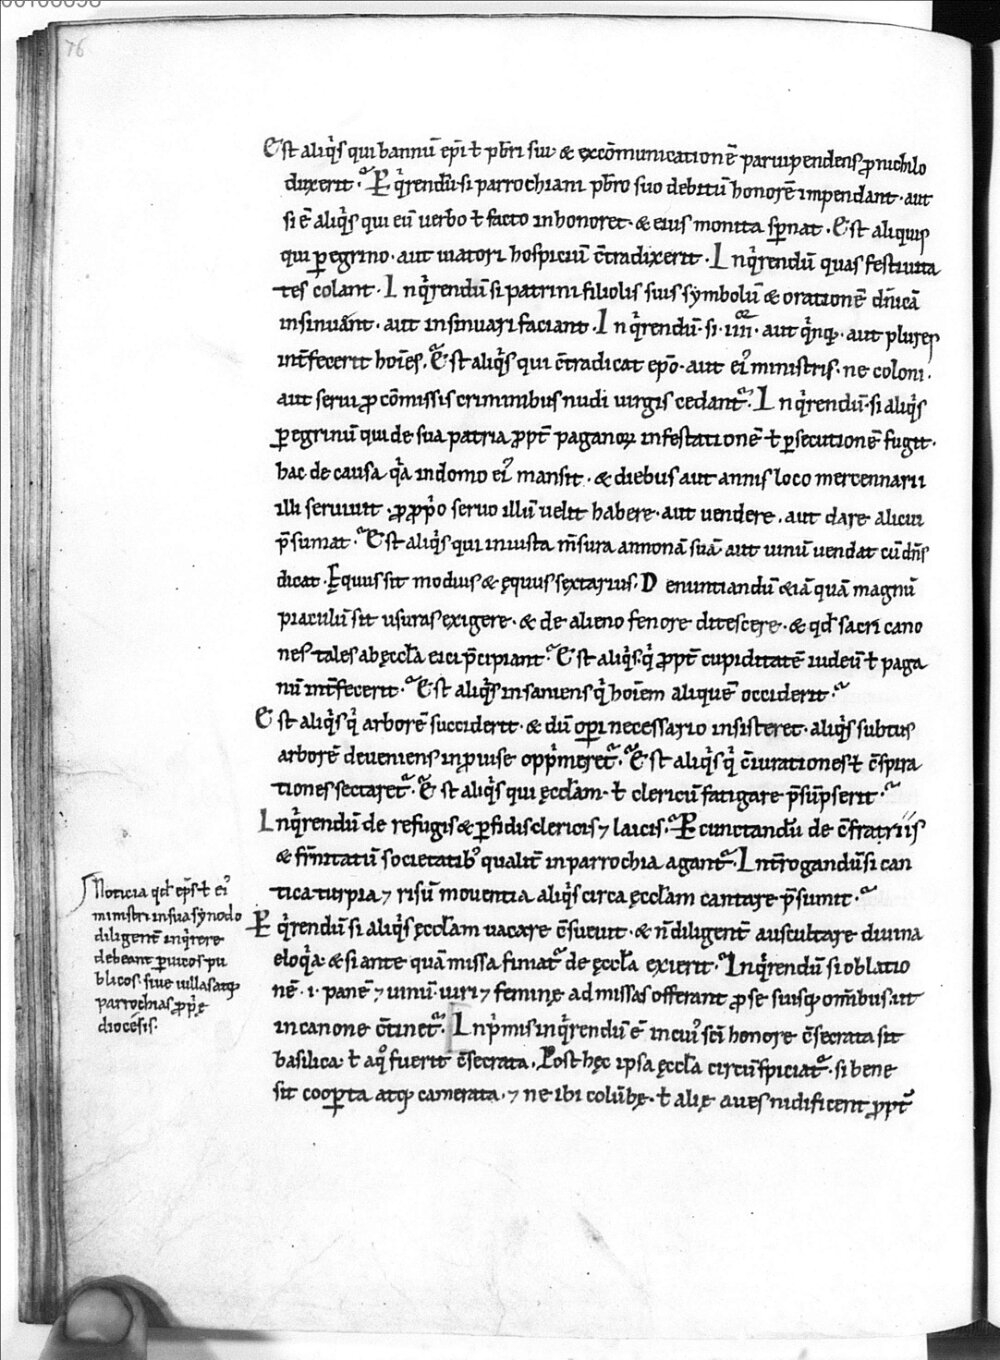 76
Est aliq̓s qui bannū ep̄i ł pb̄ri sui· & excōmunicationē paruipendens ꝓ nichilo
duxerit· Eq̓rendū·si parrochiani pb̄ro suo debitū honorē impendant· aut
si ē aliq̓s qui eū uerbo ł facto inhonoret· & eius monita sp̄nat· Est aliquis
qui ꝑegrino· aut uiatori hospiciū c̄tradixerit· Inq̓rendū quas festiuita
tes colant· Inq̓rendū si patrini filiolis suis symbolū & orationē dn̄icā
insinuānt· aut insinuari faciant· Inq̓rendū· si· iiii· aut q̓nq;· aut plures
int̄fecerit hoīes. Est aliq̓s qui c̄tradicat ep̄o· aut ei᾿ ministris· ne coloni·
aut serui ꝓ cōmissis criminibus nudi uirgis cedant᷑· Inq̓rendū·si aliq̓s
ꝑegrinū qui de sua patria ꝓpt̄ paganoꝝ infestationē ł ꝑsecutionē fugit·
hac de causa q̓a in domo ei᾿ mansit· & diebus aut annis loco mercennarii
illi seruiuit· ꝓ ꝓp̓o seruo illū uelit habere· aut uendere· aut dare alicui
p̄sumat· Est aliq̓s qui iniusta m̄sura annonā suā aut uinū uendat cū dn̄s
dicat· Ęquus sit modius & ęquus sextarius· Denuntiandū &iā quā magnū
piaculū sit usuras exigere· & de alieno fenore ditescere· & qd̄ sacri cano
nes tales ab ęccła eici p̄cipiant· Est aliq̓s·q̓ ꝓpt̄ cupiditatē iudeū ł paga
nū int̄fecerit· Est aliq̓s insaniens q̓ hoīem aliquē occiderit·
Est aliq̓s q̓ arborē succiderit· & dū opi necessario insisteret· aliq̓s subtus
arborē deueniens inꝓuise opp̓meret᷑· Est aliq̓s q̓ c̄iurationes ł c̄spira
tiones sectaret᷑· Est aliq̓s qui ęccłam· ł clericū fatigare p̄sūpserit·
Inq̓rendū de refugis & ꝑfidis clericis ⁊ laicis· Ꝑcunctandū de c̄fratriis
& fr̄nitatū societatib᾿ qualit̄ in parrochia agant᷑· Int̄rogandū si can
tica turpia ⁊ risū mouentia aliq̓s circa ęccłam cantare p̄sumit·
Eq̓rendū si aliq̓s ęccłam uacare c̄sueuit· & n̄ diligent̄ auscultare diuina
eloq̓a· & si ante quā missa finiat᷑ de ęccła exierit· Inq̓rendū si oblatio
nē· i· panē ⁊ uinū· uiri ⁊ feminę ad missas offerant ꝓ se suisq; om̄ibus· ut
in canone c̄tinet᷑· In p̓mis inq̓rendū ē in cui᾿ sc̄i honore c̄secrata sit
basilica· ł a quo fuerit c̄secrata. Post hęc ipsa ęccła circūspiciat᷑· si bene
sit cooꝑta atq; camerata· ⁊ ne ibi colūbę· ł alię aues nidificent ꝓpt̄
Noticia qd̄ ep̄s ł ei᾿
ministri in sua synodo
diligent̄ inq̓rere
debeant ꝑ uicos pu
blicos· siue uillas atq;
parrochias ꝓp̓ę
diocesis·